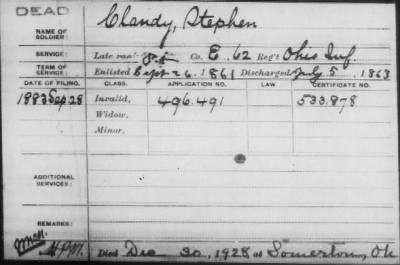 DEAD
NAME OF SOLDIER: Clandy, Stephen
SERVICE: Late rank Pvt Co. E, 62 Reg't Ohio Inf.
TERM OF SERVICE: Enlisted Sept 26, 1861 Discharged July 5, 1863
DATE OF FILING. CLASS. APPLICATION NO. LAW. CERTIFICATE NO.
1883 Sep 28 Invalid, 496.491 533.878
Widow,
Minor,
ADDITIONAL SERVICES:
REMARKS:
Died Dec 30, 1928 at Somerton, Oh